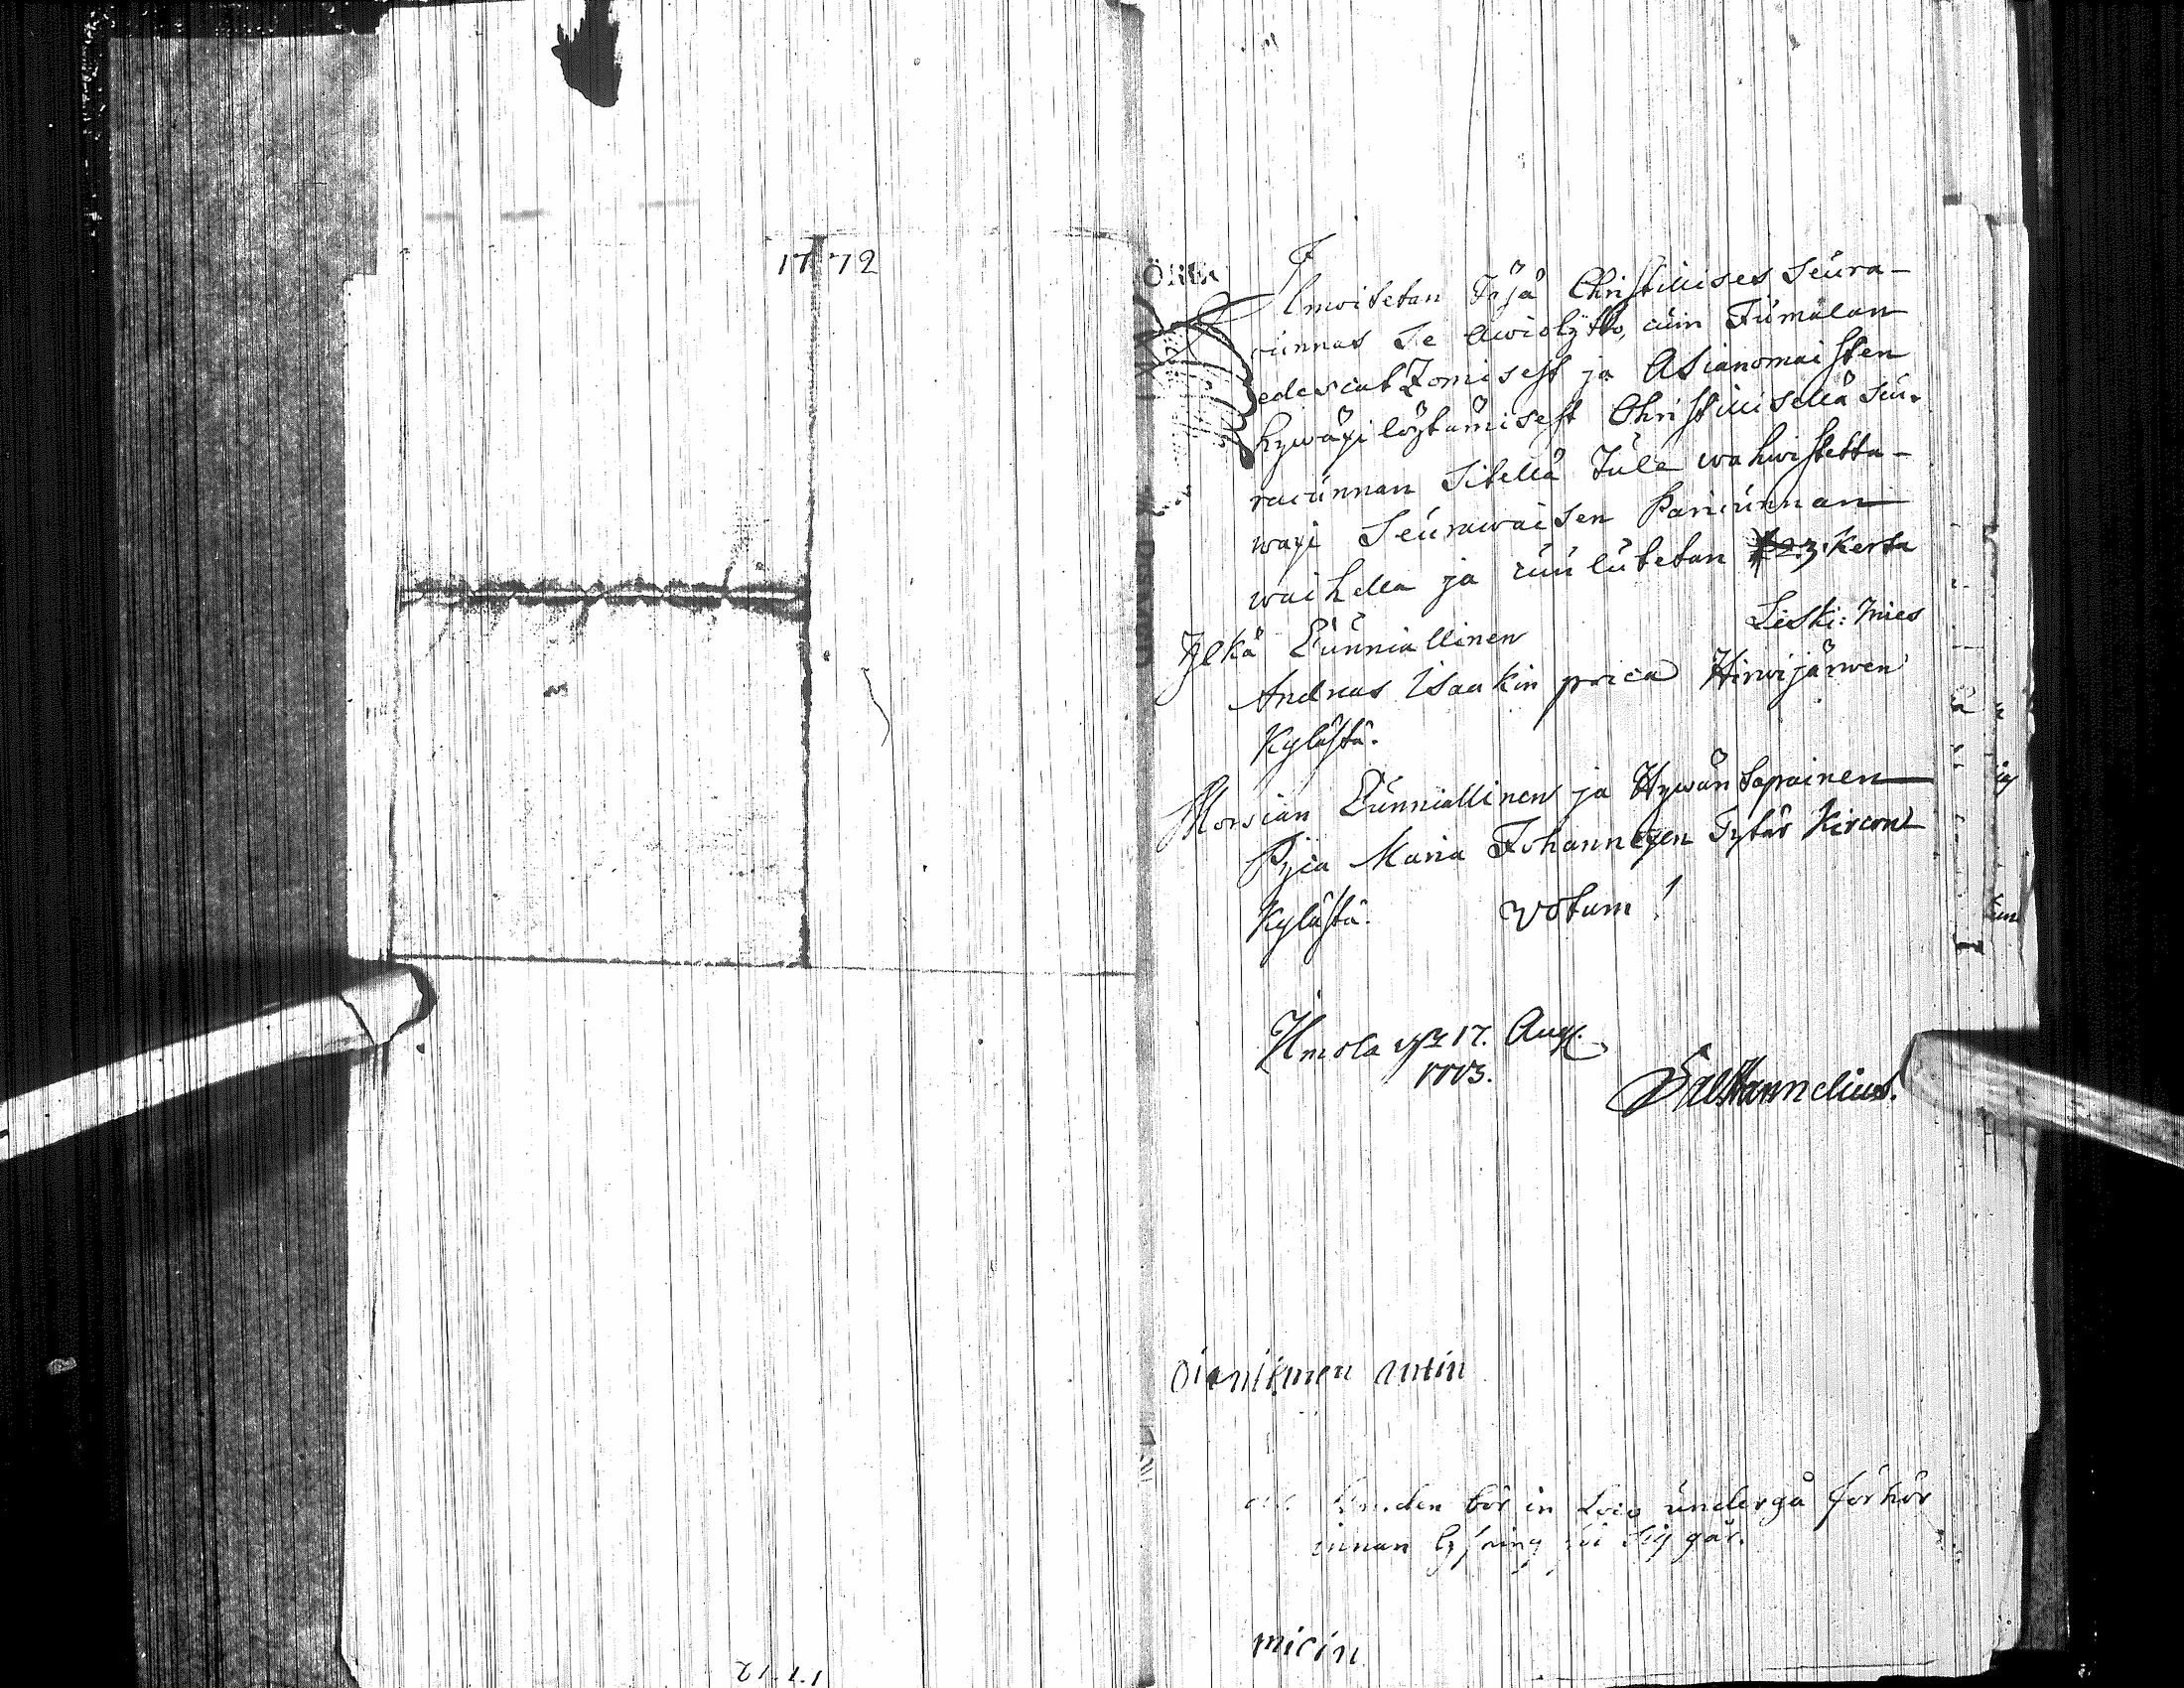 1772
Ilmoitetan Täsä Christillises Seura-
cunnas Se Awiolijtto, cuin Jumalan
edescatzomisest ja Asianomaisten
hywäxi löytämisest Christillisellä Seu-
racunnan Sitellä Tule wahwistetta-
waxi Seurawaisen Pariacunnan
waihella ja cuulutetan 3. Kerta
Ylkä Cunniallinen Leski: mies
Andreas Isaakin poica Hirwijärwen
Kylästä.
Morsian Cunniallinen ja Hywän Tapainen
Pijca Maria Johannexen Tytär Kircon
Kylästä. Votum!
Ilmola 17. Aug.
1773.
Antin
bör in Loco undergå förhör
innan lysning
micin